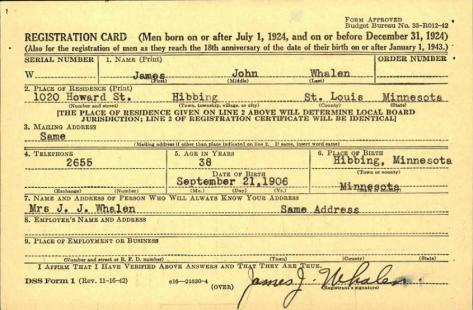 FORM APPROVED
Budget Bureau No. 33-R012-42
REGISTRATION CARD (Men born on or after July 1, 1924, and on or before December 31, 1924)
(Also for the registration of men as they reach the 18th anniversary of the date of their birth on or after January 1, 1943.)
SERIAL NUMBER 1. NAME (Print) ORDER NUMBER
W James John Whalen
(First) (Middle) (Last)
2. PLACE OF RESIDENCE (Print)
1020 Howard St. Hibbing St. Louis Minnesota
(Number and street) (Town, township, village, or city) (County) (State)
[THE PLACE OF RESIDENCE GIVEN ON LINE 2 ABOVE WILL DETERMINE LOCAL BOARD
JURISDICTION; LINE 2 OF REGISTRATION CERTIFICATE WILL BE IDENTICAL]
3. MAILING ADDRESS
Same
(Mailing address if other than place indicated on line 2. If same, insert word same)
4. TELEPHONE 5. AGE IN YEARS 6. PLACE OF BIRTH
2655 38 Hibbing, Minnesota
DATE OF BIRTH (Town or county)
September 21,1906 Minnesota
(Exchange) (Number) (Mo.) (Day) (Yr.) (State or country)
7. NAME AND ADDRESS OF PERSON WHO WILL ALWAYS KNOW YOUR ADDRESS
Mrs J. J. Whalen Same Address
8. EMPLOYER'S NAME AND ADDRESS
9. PLACE OF EMPLOYMENT OR BUSINESS
(Number and street or R. F. D. number) (Town) (County) (State)
I AFFIRM THAT I HAVE VERIFIED ABOVE ANSWERS AND THAT THEY ARE TRUE.
DSS Form 1 (Rev. 11-16-42) (OVER) James J. Whalen
(Registrant's signature)